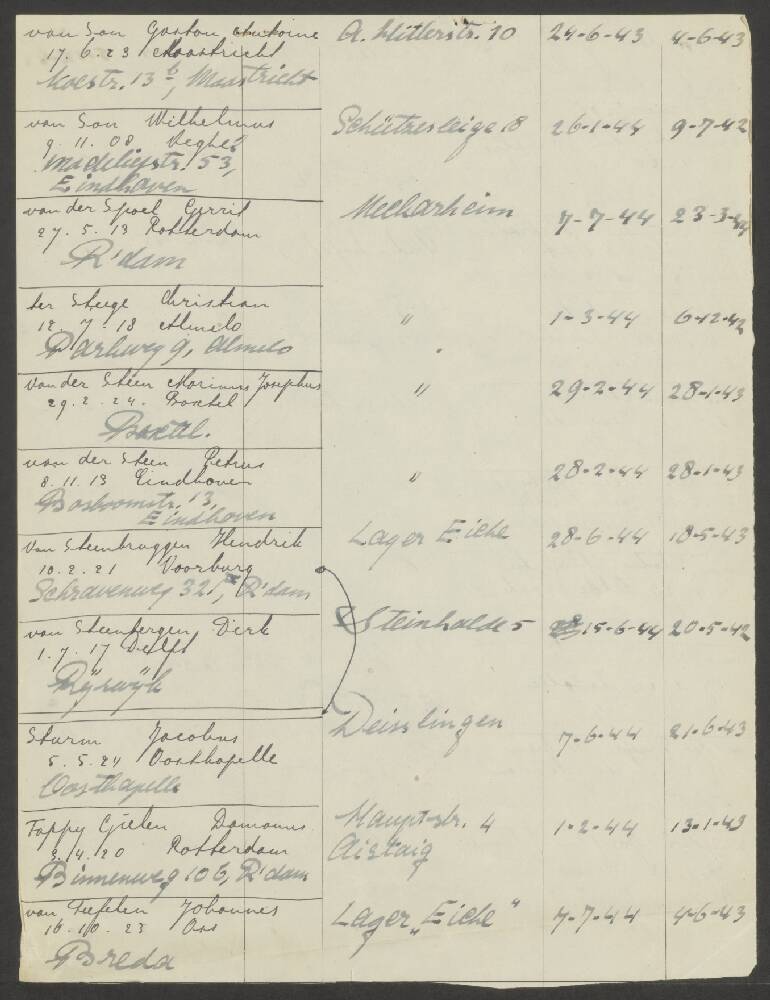 van Son Gaston Antoine A. Hitlerstr. 10 24-6-43 4-6-43
17.6.23 Maastricht
Koestr. 13 b, Maastricht
van Son Wilhelmus Schützesteige 8 26-1-44 9-7-42
9.11.08 Veghel
Madeliefstr. 53,
Eindhoven
van der Spoel Gerrit Meckarheim 7-7-44 23-3-44
27.5.13 Rotterdam
R'dam
ter Stege Christian " 1-3-44 6-12-42
12.7.18 Almelo
Parkweg 9, Almelo
van der Steen Marinus Josephus " 29-2-44 28-1-43
29.2.24. Boxtel
Boxtel.
van der Steen Petrus " 28-2-44 28-1-43
8.11.13 Eindhoven
Bosboomstr. 13,
Eindhoven
van Steenbruggen Hendrik Lager Eiche 28-6-44 18-5-43
10.2.21 Voorburg
Schravenweg 32, R'dam
van Steenbergen Dirk Steinhalde 5 15-6-44 20-5-42
1.7.17 Delft
Rijswijk
Sturm Jacobus Deisslingen 7-6-44 21-6-43
5.5.24 Oostkapelle
Oostkapelle
Toppy Gielen Hauptstr. 4 1-2-44 13-1-43
20 Rotterdam Aistaig
Binnenweg 106, R'dam
van Johannes Lager "Eiche" 7-7-44 4-6-43
16.10.23 Oss
Breda